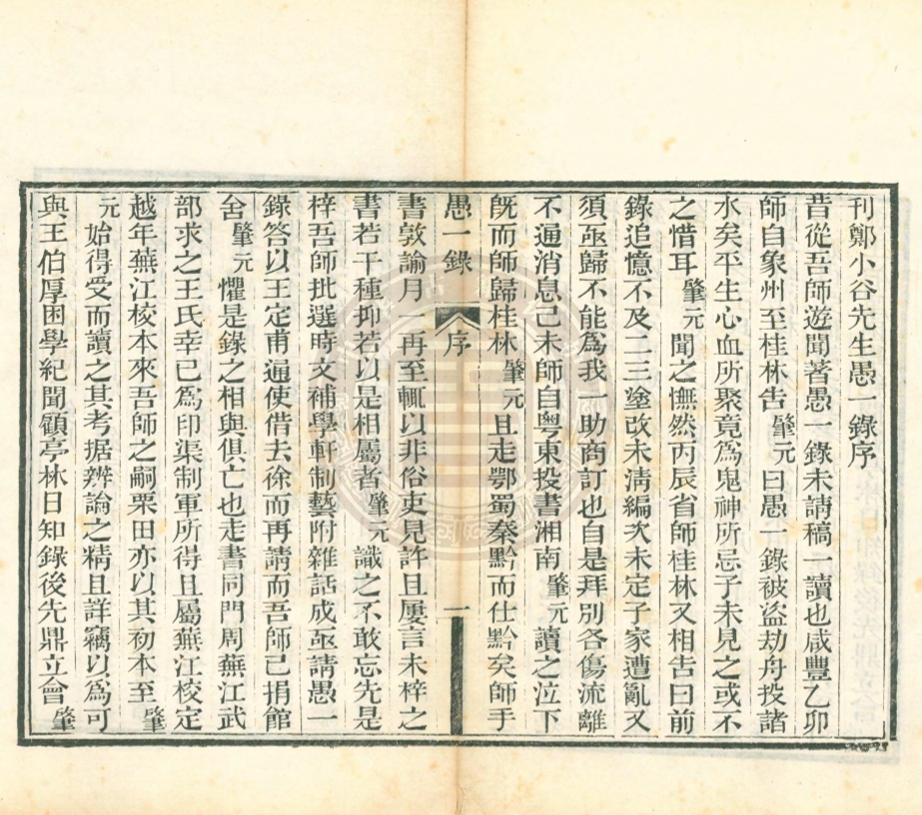 刊鄭小谷先生愚一錄序
昔從吾師遊聞著愚一錄未請稿一讀也咸豐乙卯
師自象州至桂林告肇元曰愚一錄被盜劫舟投諸
水矣平生心血所聚竟為鬼神所忌子未見之或不
之惜耳肇元聞之憮然丙辰省師桂林又相告曰前
錄追憶不及二三塗改未淸編次未定子家遭亂又
須亟歸不能為我一助商訂也自是拜別各傷流離
不通消息己未師自粵東投書湘南肇元讀之泣下
旣而師歸桂林肇元且走鄂蜀秦黔而仕黔矣師手
愚一錄 序 一
書敦諭月一再至輒以非俗吏見許且屢言未梓之
書若干種抑若以是相屬者肇元識之不敢忘先是
梓吾師批選時文補學軒制藝附雜話成亟請愚一
錄答以王定甫通使借去徐而再請而吾師已捐館
舍肇元懼是錄之相與俱亡也走書同門周蕪江武
部求之王氏幸已為印渠制軍所得且屬蕪江校定
越年蕪江校本來吾師之嗣栗田亦以其初本至肇
元始得受而讀之其考据辨論之精且詳竊以為可
與王伯厚困學紀聞顧亭林日知錄後先鼎立會肇